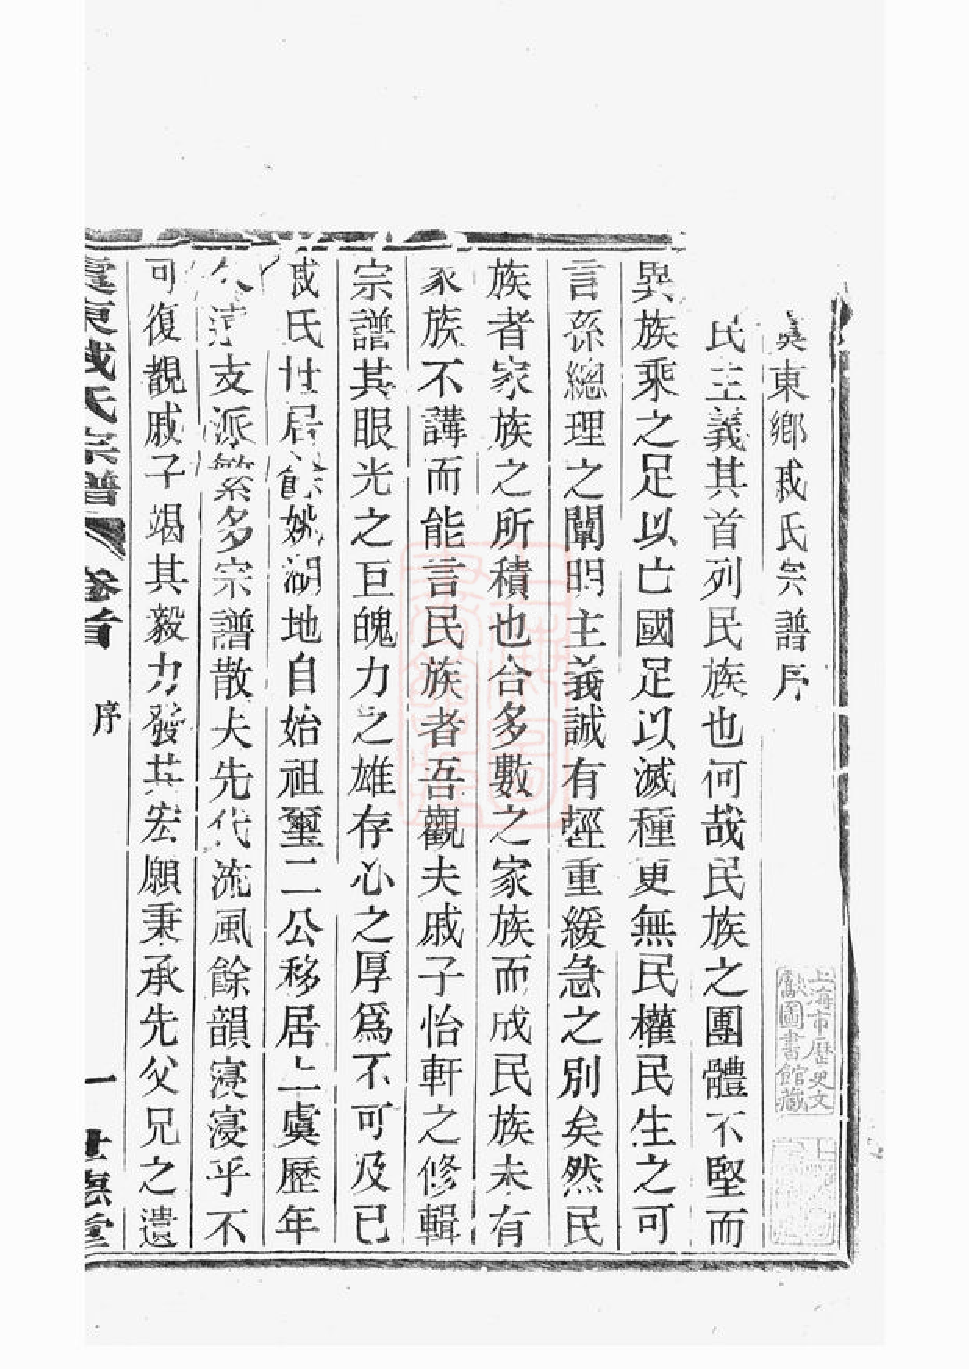 虞東鄉戚氏宗譜序
民主義其首列民族也何哉民族之團體不堅而
異族乘之足以亡國足以滅種更無民權民生之可
言孫總理之闡明主義誠有輕重緩急之別矣然民
族者家族之所積也合多數之家族而成民族未有
家族不講而能言民族者吾觀夫戚子怡軒之修輯
宗譜其眼光之巨魄力之雄存心之厚爲不可及已
戚氏世居餘姚湖地自始祖璽二公移居上虞歷年
久遠支派繁多宗譜散失先代流風餘韻寖寖乎不
可復覩戚子竭其毅力發其宏願秉承先父兄之遺
虞東戚氏宗譜 卷首 序 一 世德堂
上海市歷史文
獻圖書館藏